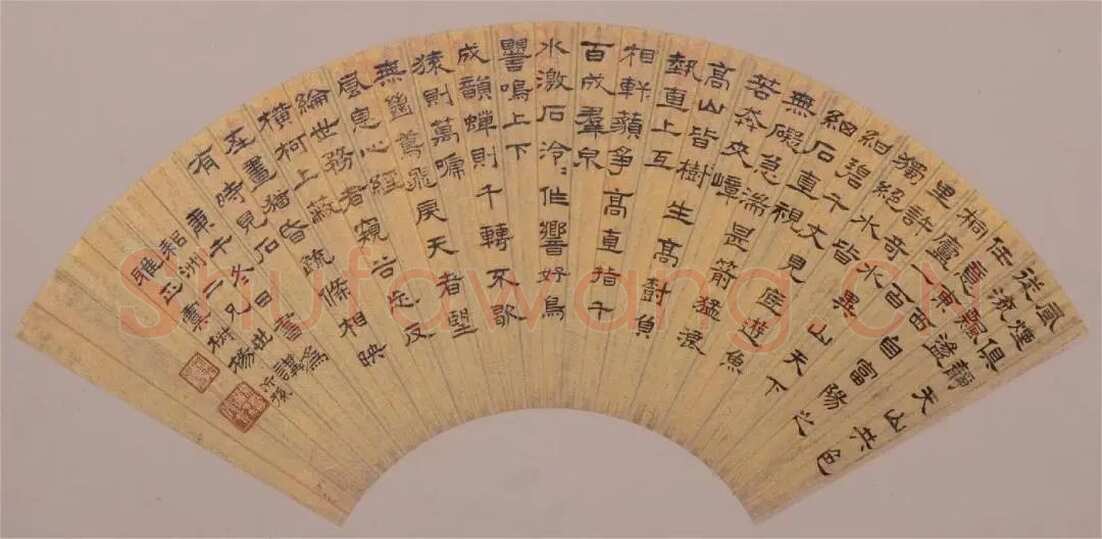 風煙俱靜天山共色
從流飄蕩
任意東西自富陽以
桐廬一百
里許奇水異山天下
獨絕水皆
紺碧千丈見底遊魚
細石直視
無礙急湍甚箭猛浪
若奔夾嶂
高山皆樹生高樹負
勢直上互
相軒藾爭高直指千
百成羣泉
水激石泠泠作響好鳥
嚶鳴上下
成韻蟬則千轉不歇
猿則萬嘯
無絕鳶飛戾天者望
息心經
綸世務者窺谷忘反
橫柯上蔽
在晝猶昏疏條相映
有時見日
午冬日書爲
洲二兄世講
雅正
Shufawang.CN